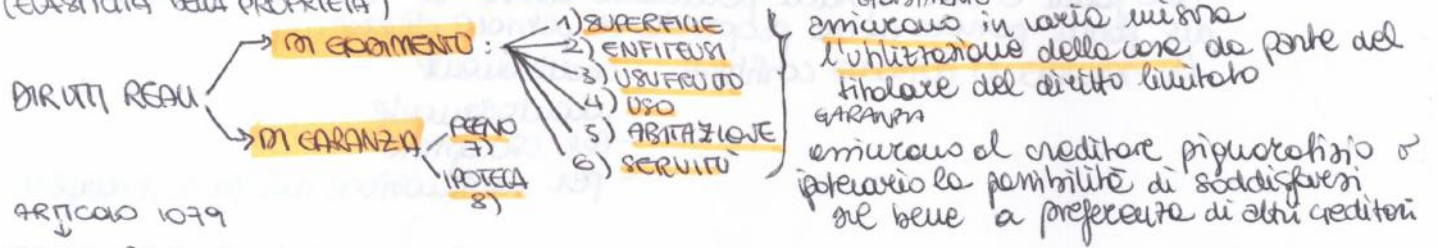 (ELASTICITÀ DELLA PROPRIETÀ)
DIRITTI REALI
DI GODIMENTO:
1) SUPERFICIE
2) ENFITEUSI
3) USUFRUTTO
4) USO
5) ABITAZIONE
6) SERVITÙ
DI GARANZIA
PEGNO
7)
IPOTECA
8)
GODIMENTO
assicurano in varia misura
l'utilizzazione della cosa da parte del
titolare del diritto limitato
GARANZIA
assicurano al creditore pignoratizio o
ipotecario la possibilità di soddisfarsi
sul bene a preferenza di altri creditori
ARTICOLO 1079